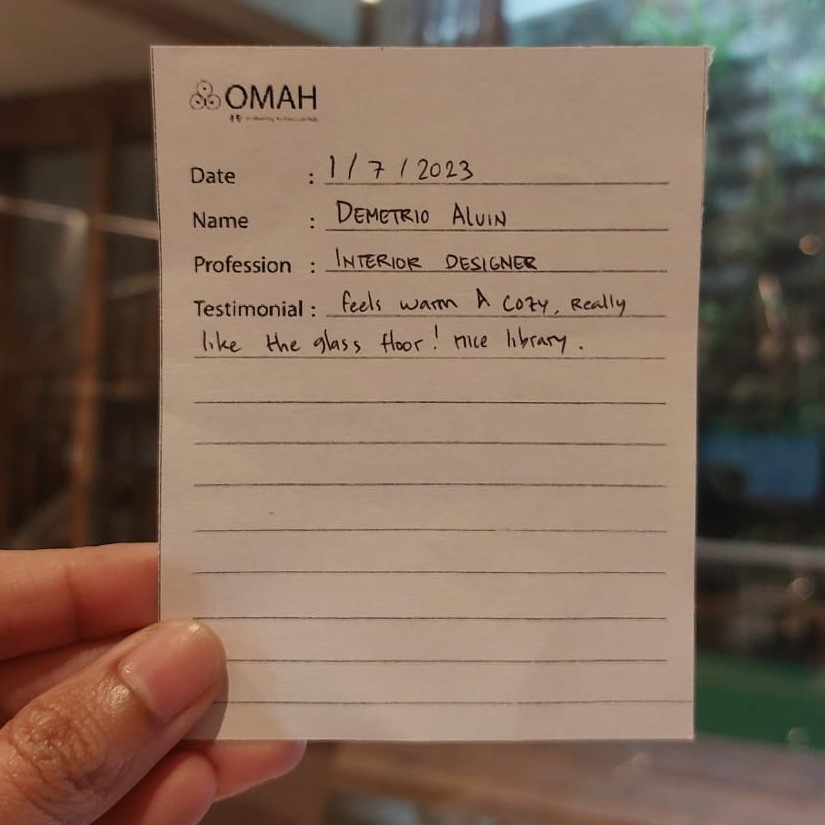 OMAH
Date : 1/7/2023
Name : DEMETRIO ALVIN
Profession : INTERIOR DESIGNER
Testimonial : feels warm & cozy, Really
like the glass floor! nice library.